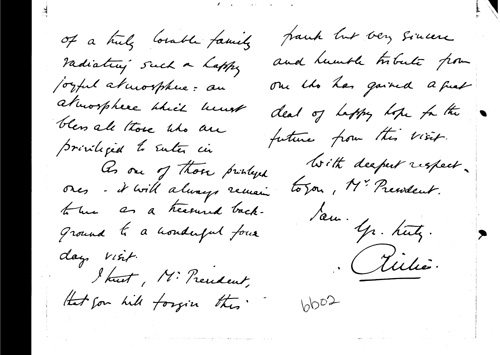 of a truly lovable family
radiating such a happy
joyful atmosphere : an
atmosphere which must
bless all those who are
priviliged to enter in
As one of those privileged
ones - it will always remain
to me as a treasured back-
ground to a wonderful four
days visit.
I trust, Mr. President,
that you will forgive this
frank but very sincere
and humble tribute from
one who has gained a great
deal of happy hope for the
future from this visit.
With deepest respect -
to you, Mr. President.
I am.
Yr.
6602